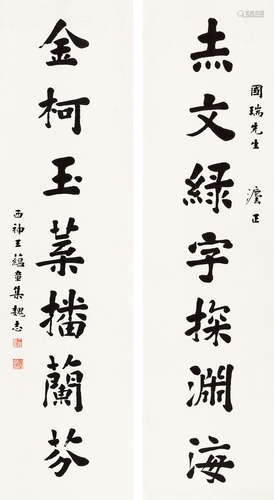 赤文綠字探淵海
國瑞先生 灋正
金柯玉葉播蘭芬
西神王蘊章集魏志